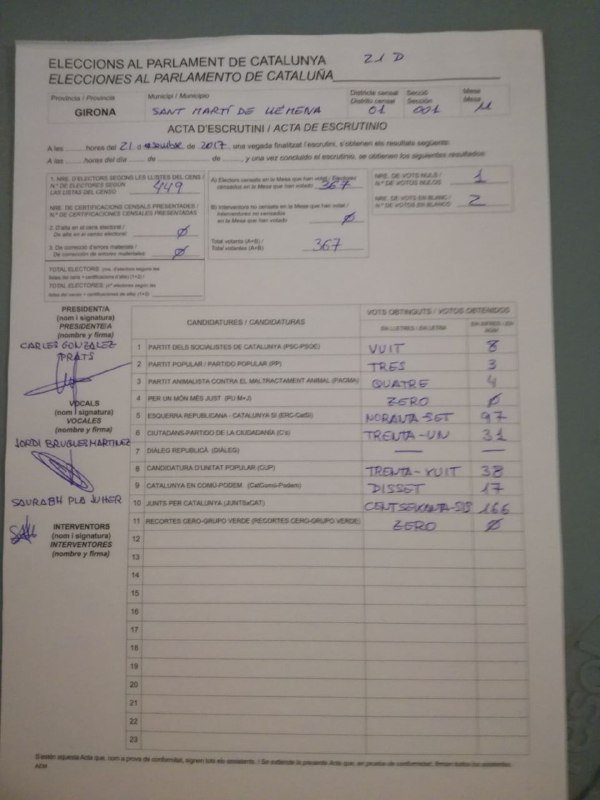 ELECCIONS AL PARLAMENT DE CATALUNYA 21 D
ELECCIONES AL PARLAMENTO DE CATALUÑA
Província / Provincia Municipi / Municipio Districte censal Secció Mesa
Distrito censal Sección Mesa
GIRONA SANT MARTÍ DE LLÉMENA 01 001 U
ACTA D'ESCRUTINI / ACTA DE ESCRUTINIO
A les ...... hores del 21 d de 2017, una vegada finalitzat l'escrutini, s'obtenen els resultats següents:
A las ...... horas del día ...... de ...... de ......, y una vez concluido el escrutinio, se obtienen los siguientes resultados:
1. NRE. D'ELECTORS SEGONS LES LLISTES DEL CENS /
N.º DE ELECTORES SEGÚN
LAS LISTAS DEL CENSO 449
NRE. DE CERTIFICACIONS CENSALS PRESENTADES /
N.º DE CERTIFICACIONES CENSALES PRESENTADAS
2. D'alta en el cens electoral /
De alta en el censo electoral Ø
3. De correcció d'errors materials /
De corrección de errores materiales Ø
TOTAL ELECTORS:
TOTAL ELECTORES:
A) Electors censats en la Mesa que han votat / Electores
censados en la Mesa que han votado 367
B) Interventors no censats en la Mesa que han votat /
Interventores no censados
en la Mesa que han votado Ø
Total votants (A+B) /
Total votantes (A+B) 367
NRE. DE VOTS NULS /
N.º DE VOTOS NULOS 1
NRE. DE VOTS EN BLANC /
N.º DE VOTOS EN BLANCO 2
PRESIDENT/A
(nom i signatura)
PRESIDENTE/A
(nombre y firma)
CARLES GONZALEZ
PRATS
VOCALS
(nom i signatura)
VOCALES
(nombre y firma)
JORDI BRUGUÉS MARTINEZ
SAURABH PLA JUHER
INTERVENTORS
(nom i signatura)
INTERVENTORES
(nombre y firma)
CANDIDATURES / CANDIDATURAS VOTS OBTINGUTS / VOTOS OBTENIDOS
EN LLETRES / EN LETRA EN XIFRES / EN
1 PARTIT DELS SOCIALISTES DE CATALUNYA (PSC-PSOE) VUIT 8
2 PARTIT POPULAR / PARTIDO POPULAR (PP) TRES 3
3 PARTIT ANIMALISTA CONTRA EL MALTRACTAMENT ANIMAL (PACMA) QUATRE 4
4 PER UN MÓN MÉS JUST (PUM+J) ZERO Ø
5 ESQUERRA REPUBLICANA - CATALUNYA SÍ (ERC-CatSí) NORANTA-SET 97
6 CIUTADANS-PARTIDO DE LA CIUDADANÍA (C's) TRENTA-UN 31
7 DIÀLEG REPUBLICÀ (DIÀLEG) — —
8 CANDIDATURA D'UNITAT POPULAR (CUP) TRENTA-VUIT 38
9 CATALUNYA EN COMÚ-PODEM (CatComú-Podem) DISSET 17
10 JUNTS PER CATALUNYA (JUNTSxCAT) CENT SEIXANTA-SIS 166
11 RECORTES CERO-GRUPO VERDE (RECORTES CERO-GRUPO VERDE) ZERO Ø
12
13
14
15
16
17
18
19
20
21
22
23
S'estén aquesta Acta que, com a prova de conformitat, signen tots els assistents. / Se extiende la presente Acta que, en prueba de conformidad, firman todos los asistentes.